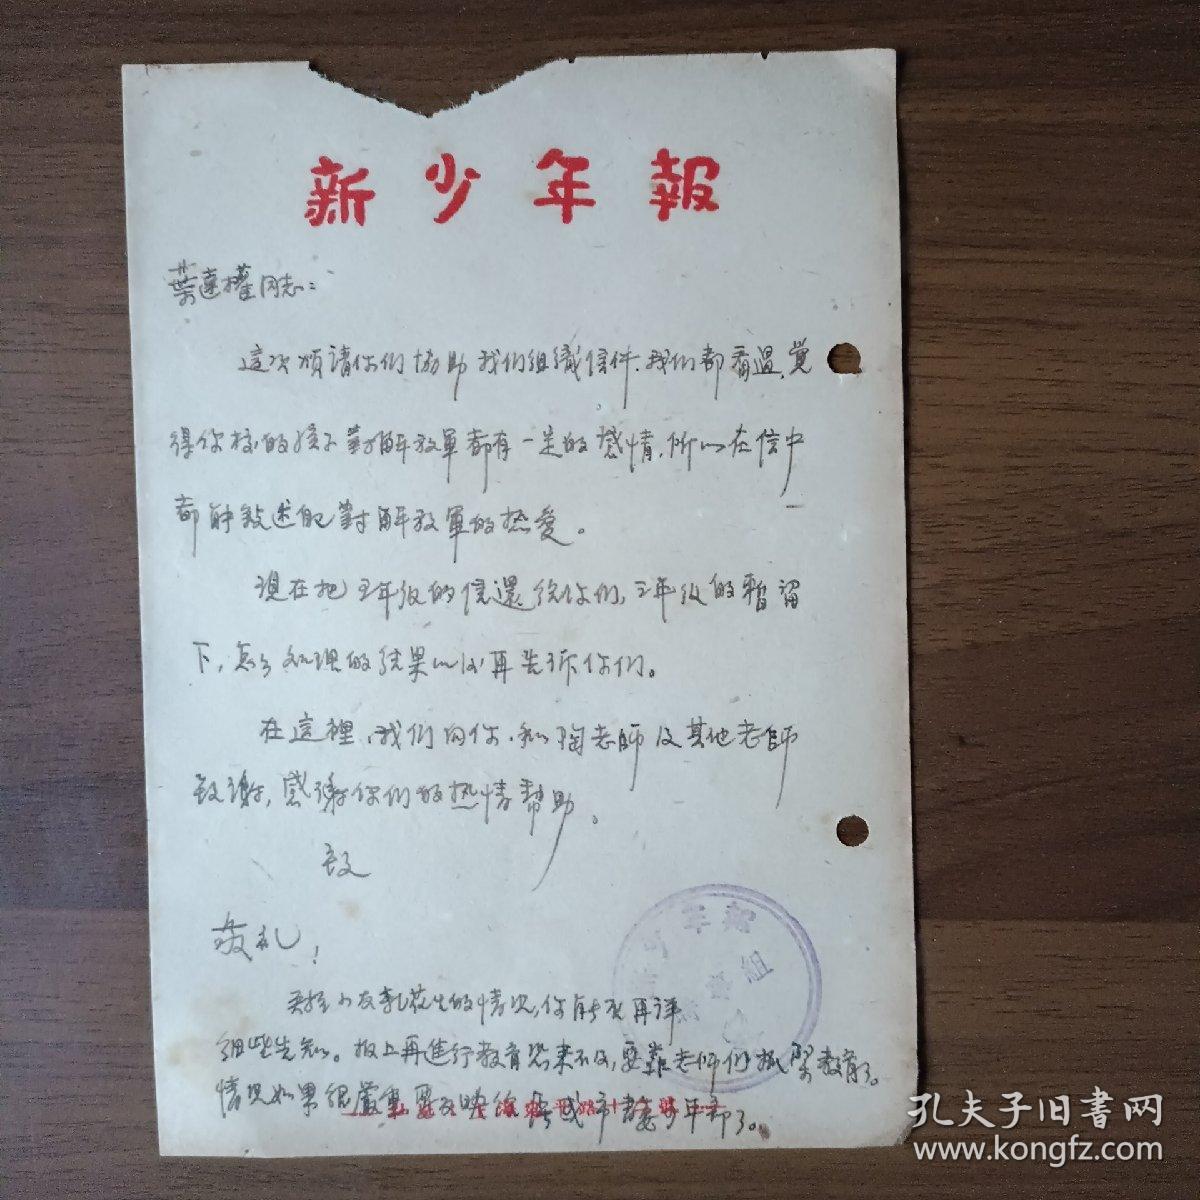 新少年報
葉蓮權同志:
這次煩請你们協助我们組織信件、我们都看過,覺
得你校的孩子對解放軍都有一定的感情,所以在信中
都能敍述出對解放軍的热爱。
現在把五年級的信還给你们,三年级的暂留
下,怎么处理的结果以后再告诉你们。
在這裡,我们向你,和陶老師及其他老師
致谢,感谢你们的热情帮助。
致
敬礼!
小友乱花生的情况,你能否再详
细些告知。报上再進行教育恐来不及,要靠老师们抓緊教育了。
情况如果很嚴重 要反映给 或市 少年部了。
新少年報
組
孔夫子旧書网
www.kongfz.com